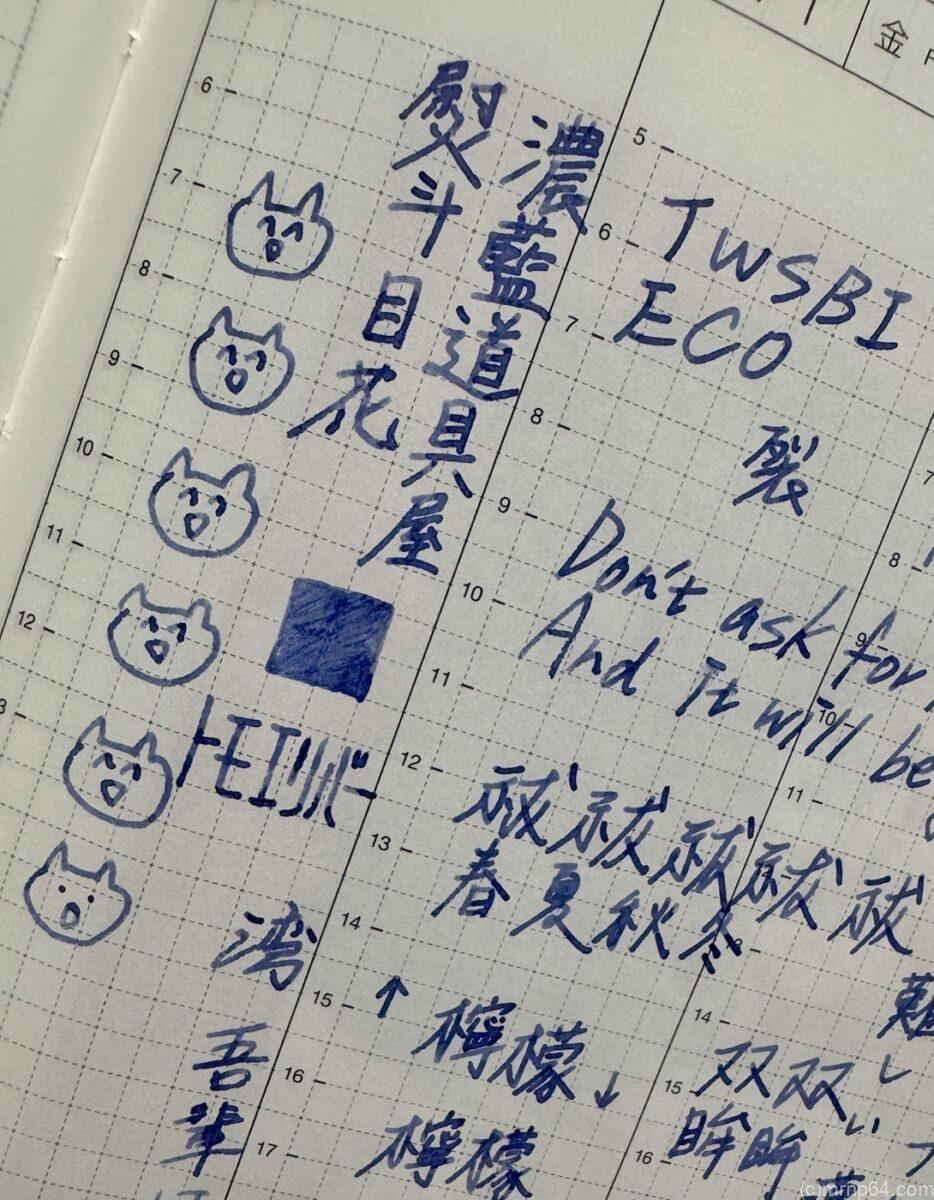 金
6
7
8
9
10
11
12
3
濃藍道具屋
熨斗目花
トモエリバー
湾
吾輩
5
6
7
8
9
10
11
12
13
14
15
16
17
TWSBI
ECO
裂
Don't ask for
And it will be
祓祓祓祓祓
春夏秋冬
↑檸檬↓
檸檬
7
8
9
10
11
14
15
16
難しい
双双
眸眸
(c)mrnp64.com